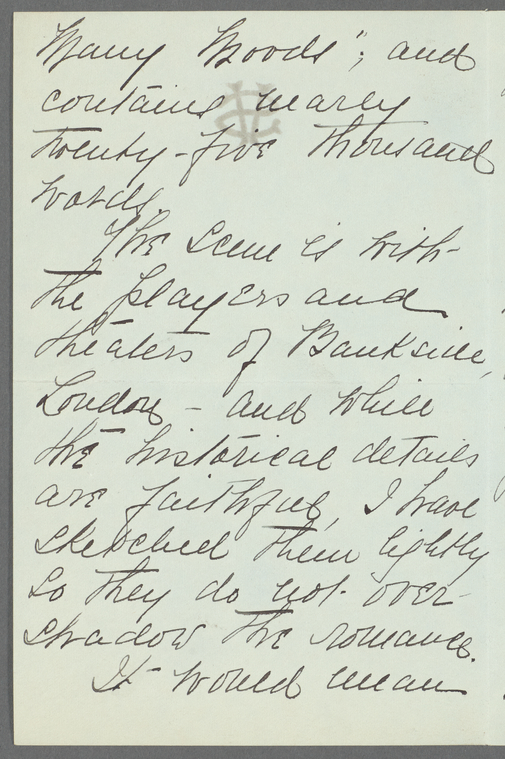 Many Moods"; and
contains nearly
twenty-five thousand
words.
The scene is with
the players and
theaters of Bankside,
London - and while
the historical details
are faithful, I have
sketched them lightly
so they do not over-
shadow the romance.
It would mean